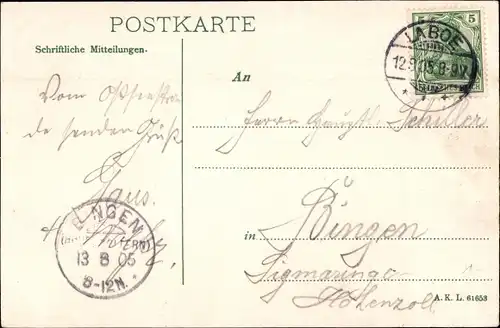 POSTKARTE
Schriftliche Mitteilungen.
5
5
LABOE
12.8.05.8-9V
An
Vom Ostseestran
de senden Grüße
Herrn Hauptl. Schiller
Hans.
BINGEN
13 8 05
8-12N.
in Bingen
Sigmaringen
Hohenzoll
A. K. L. 61653